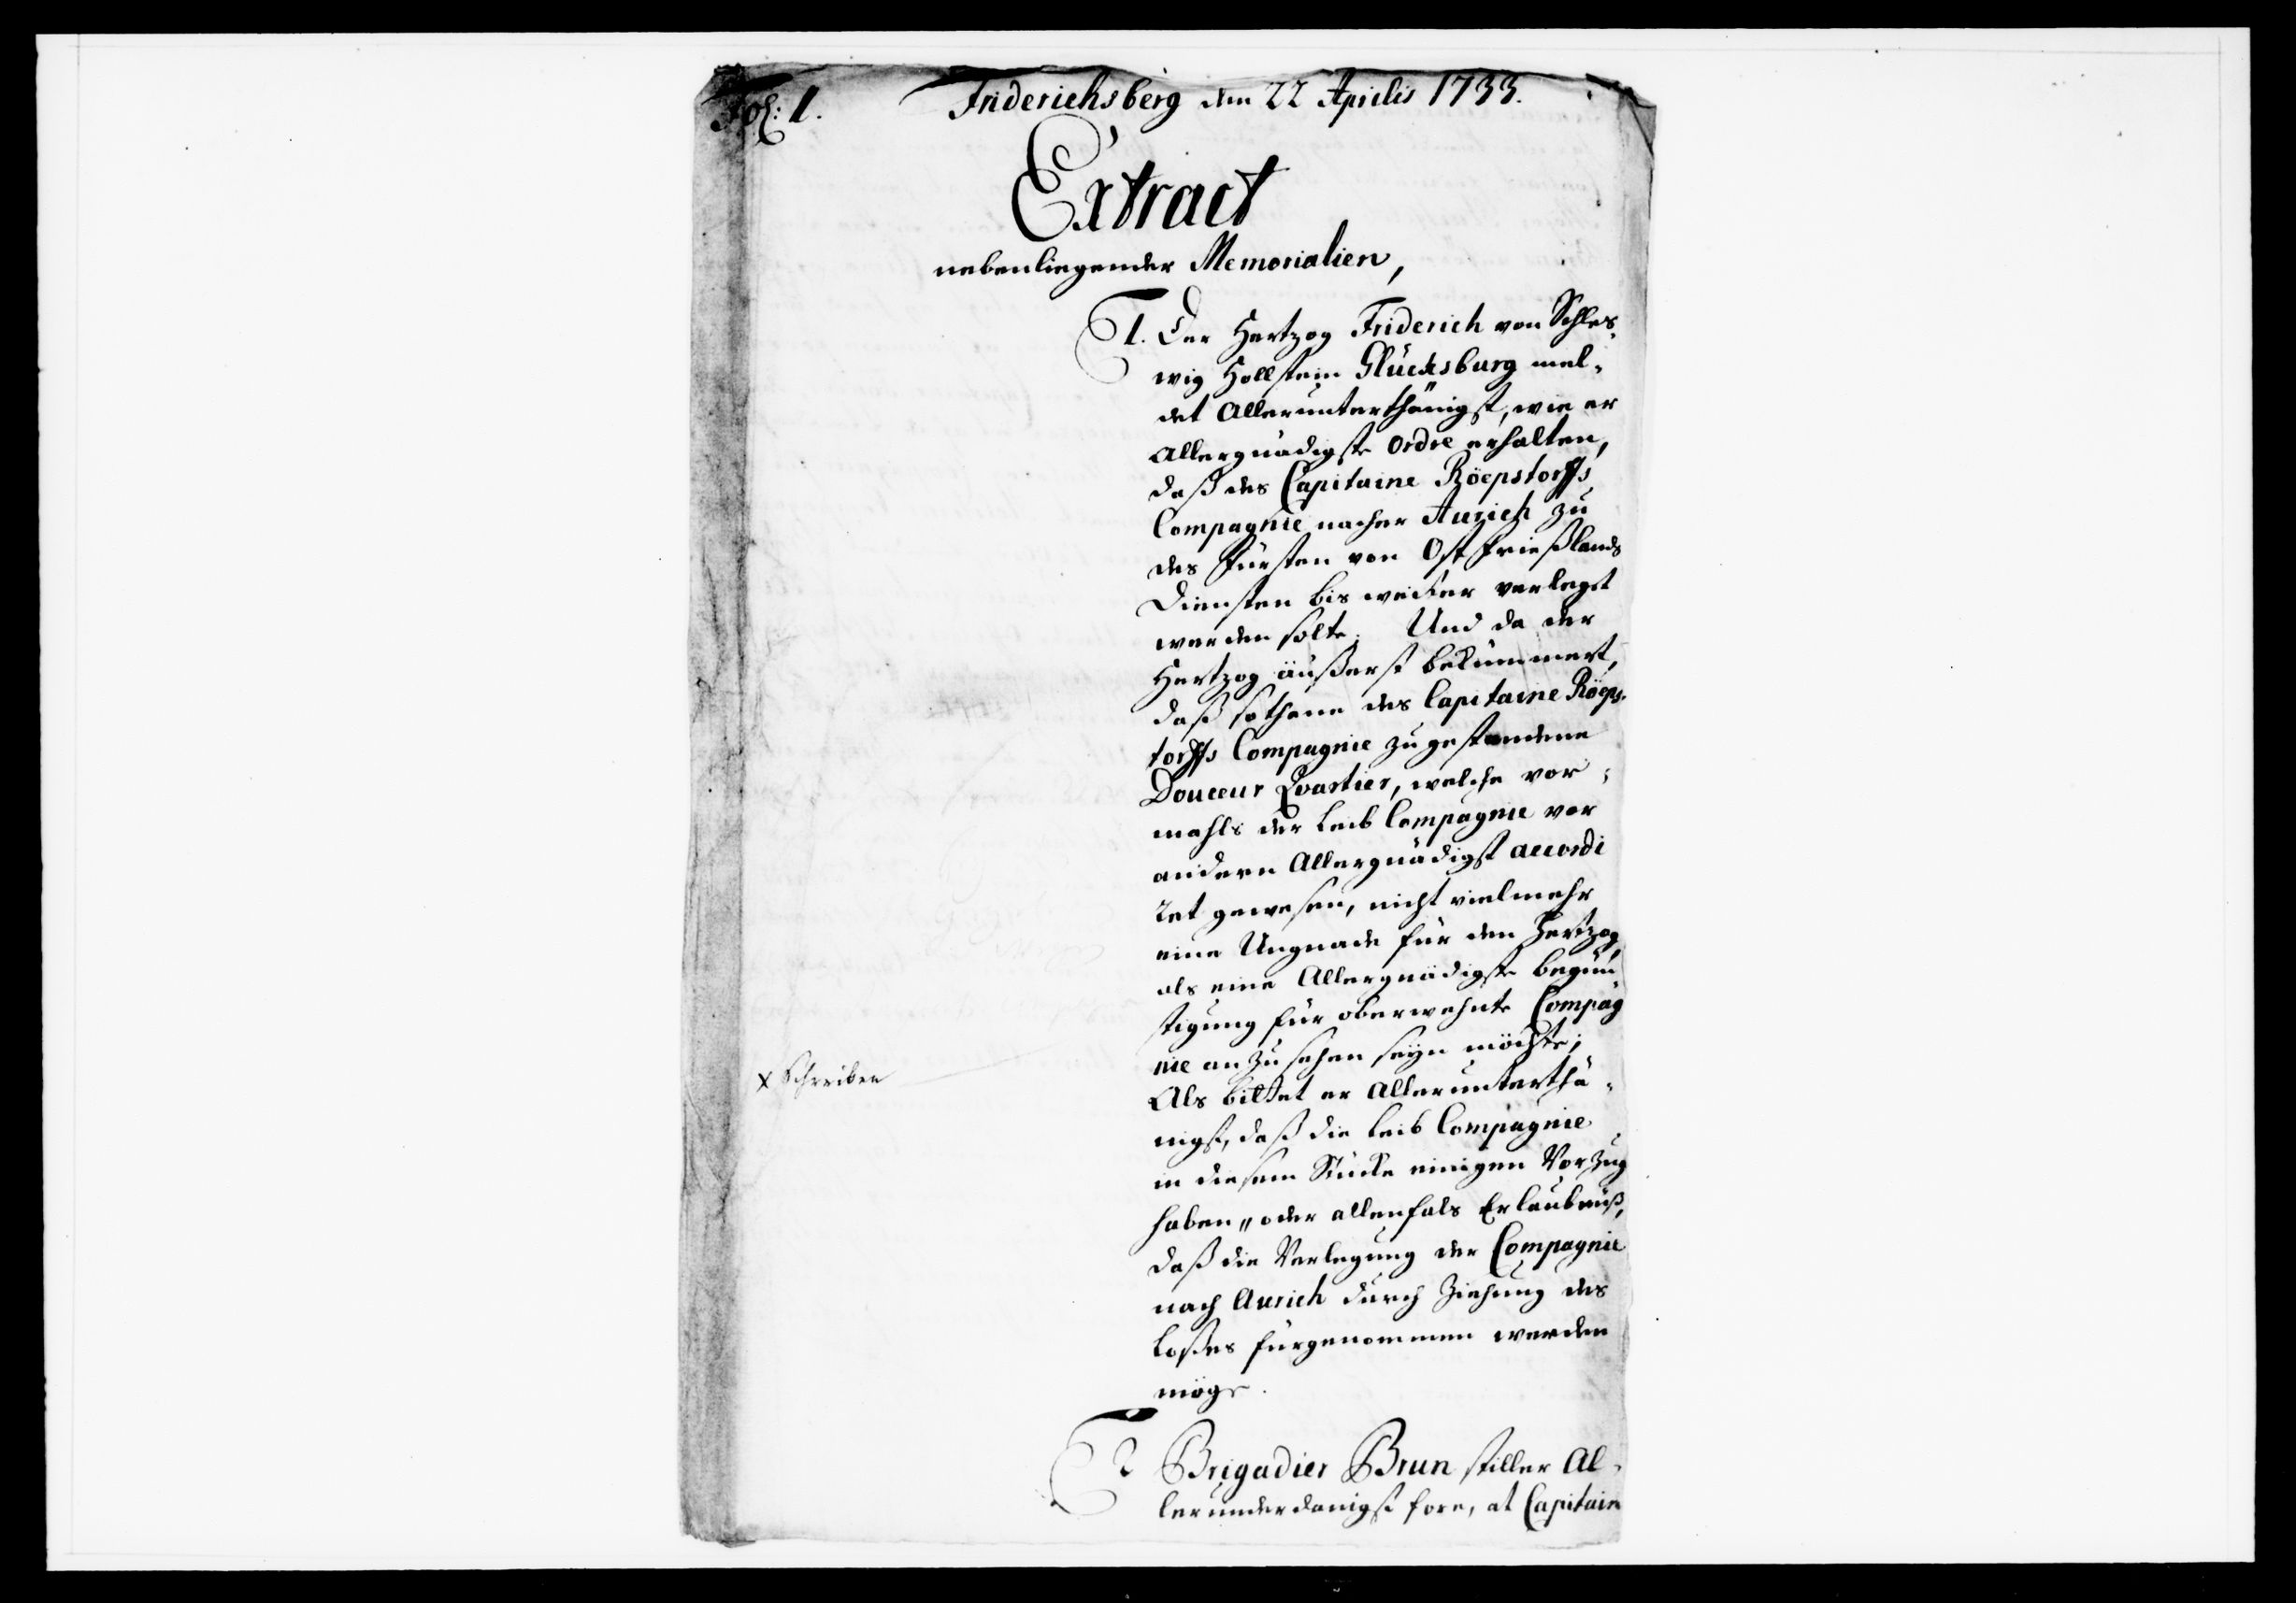 Fol: 1.
Friderichsberg den 22 Aprilis 1733.
Extract
nebenliegender Memorialien,
1. Der Hertzog Friderich von Schles-
wig Hollstein Glücksburg mel-
det Allerunterthänigst, wie er
Allergnädigste Ordre erhalten,
daß des Capitaine Röepstorffs
Compagnie nacher Aurich zu
des Fürsten von Ost Frießlands
Diensten bis weiter verlegt
werden solte. Und da der
Hertzog äußerst bekümmert,
daß sothane des Capitaine Röeps-
torffs Compagnie zugestandene
Douceur Qvartier, welche vor-
mahls der Leib Compagnie vor
andern Allergnädigst accordi
ret gewesen, nicht vielmehr
eine Ungnade für den Hertzog,
als eine Allergnädigste begün
stigung für oberwehnte Compag
nie anzusehen seyn möchte;
Als bittet er Allerunterthä-
nigst, daß die Leib Compagnie
in diesem Stücke einigen Vorzug
haben, oder allenfals Erlaubnüß,
daß die Verlegung der Compagnie
nach Aurich durch Ziehung des
Loßes fürgenommen werden
möge.
x Schreiben
2 Brigadier Brun stiller Al-
lerunderdanigst fore, at Capitain